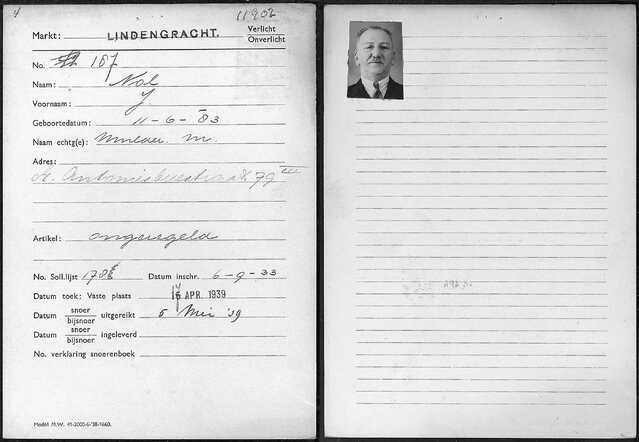 4 11902
Markt: LINDENGRACHT. Verlicht
Onverlicht
No. 187
Naam: Nol
Voornaam: J
Geboortedatum: 11-6-83
Naam echtg(e): Mulder. M.
Adres:
St. Antoniesbreestraat 79 III
Artikel: ongeregeld
No. Soll.lijst 178 Datum inschr. 6-9-33
Datum toek: Vaste plaats APR. 1939
Datum snoer
bijsnoer uitgereikt 5 Mei '39
Datum snoer
bijsnoer ingeleverd
No. verklaring snoerenboek
Model M.W. 41-2000-6-'38-1660.